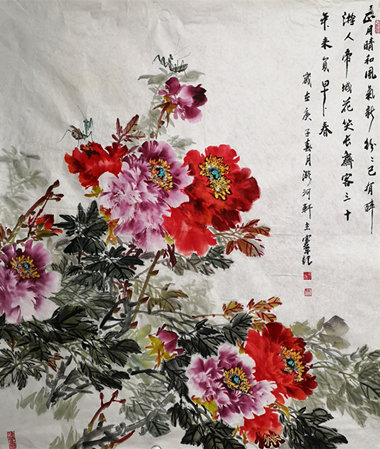 正月晴和風氣新紛〻已有醉
遊人帝城花笑長齋客三十
年来負早春
歲在庚子春月河軒主